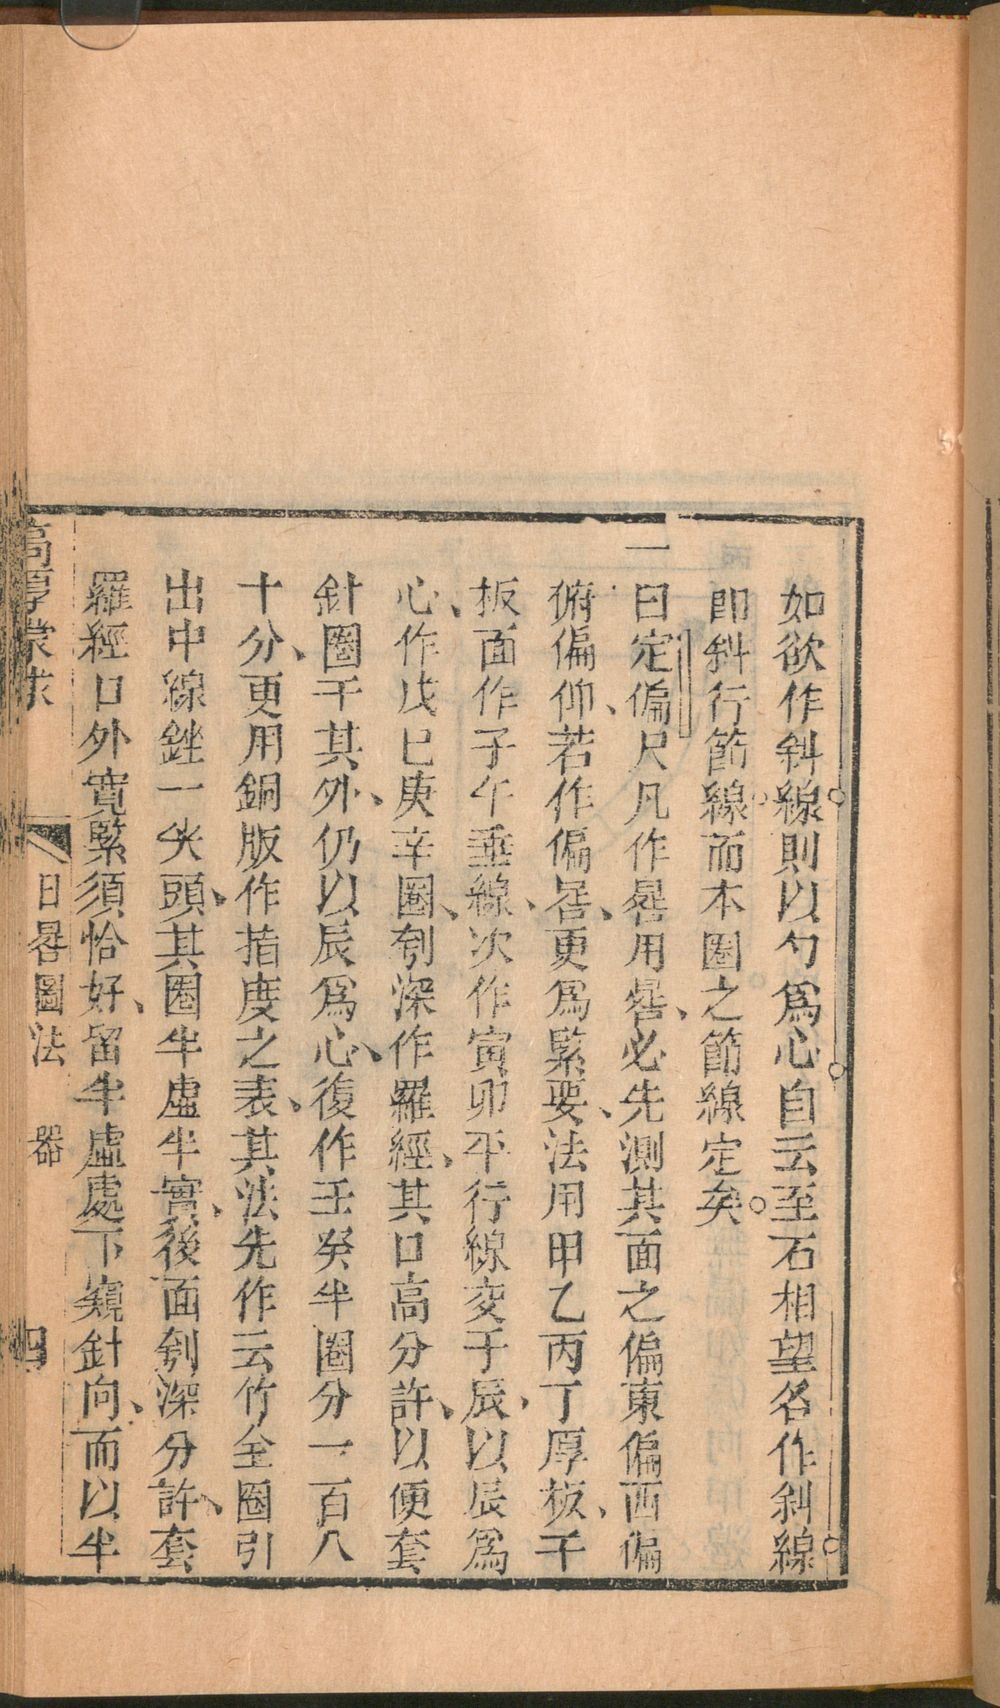 如欲作斜線則以勺爲心自云至石相望各作斜線
即斜行節線而本圈之節線定矣
一曰定偏尺凡作晷用晷必先測其面之偏東偏西偏
俯偏仰若作偏晷更爲緊要法用甲乙丙丁厚板于
板面作子午垂線次作寅卯平行線交于辰以辰爲
心作戊巳庚辛圈刳深作羅經其口高分許以便套
針圈于其外仍以辰爲心復作壬癸半圈分一百八
十分更用銅版作指度之表其法先作云竹全圈引
出中線銼一尖頭其圈半虛半實後面刳深分許套
羅經口外寬緊須恰好留半虛處下窺針向而以半
高厚蒙求
日晷圖法
器
四